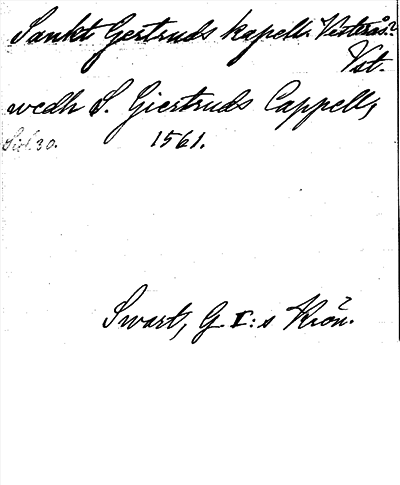 Sankt Gertruds kapell. Västerås?
Vst.
wedh S. Giertruds Cappell,
Sid. 30. 1561.
Swart, G I:s Krön.